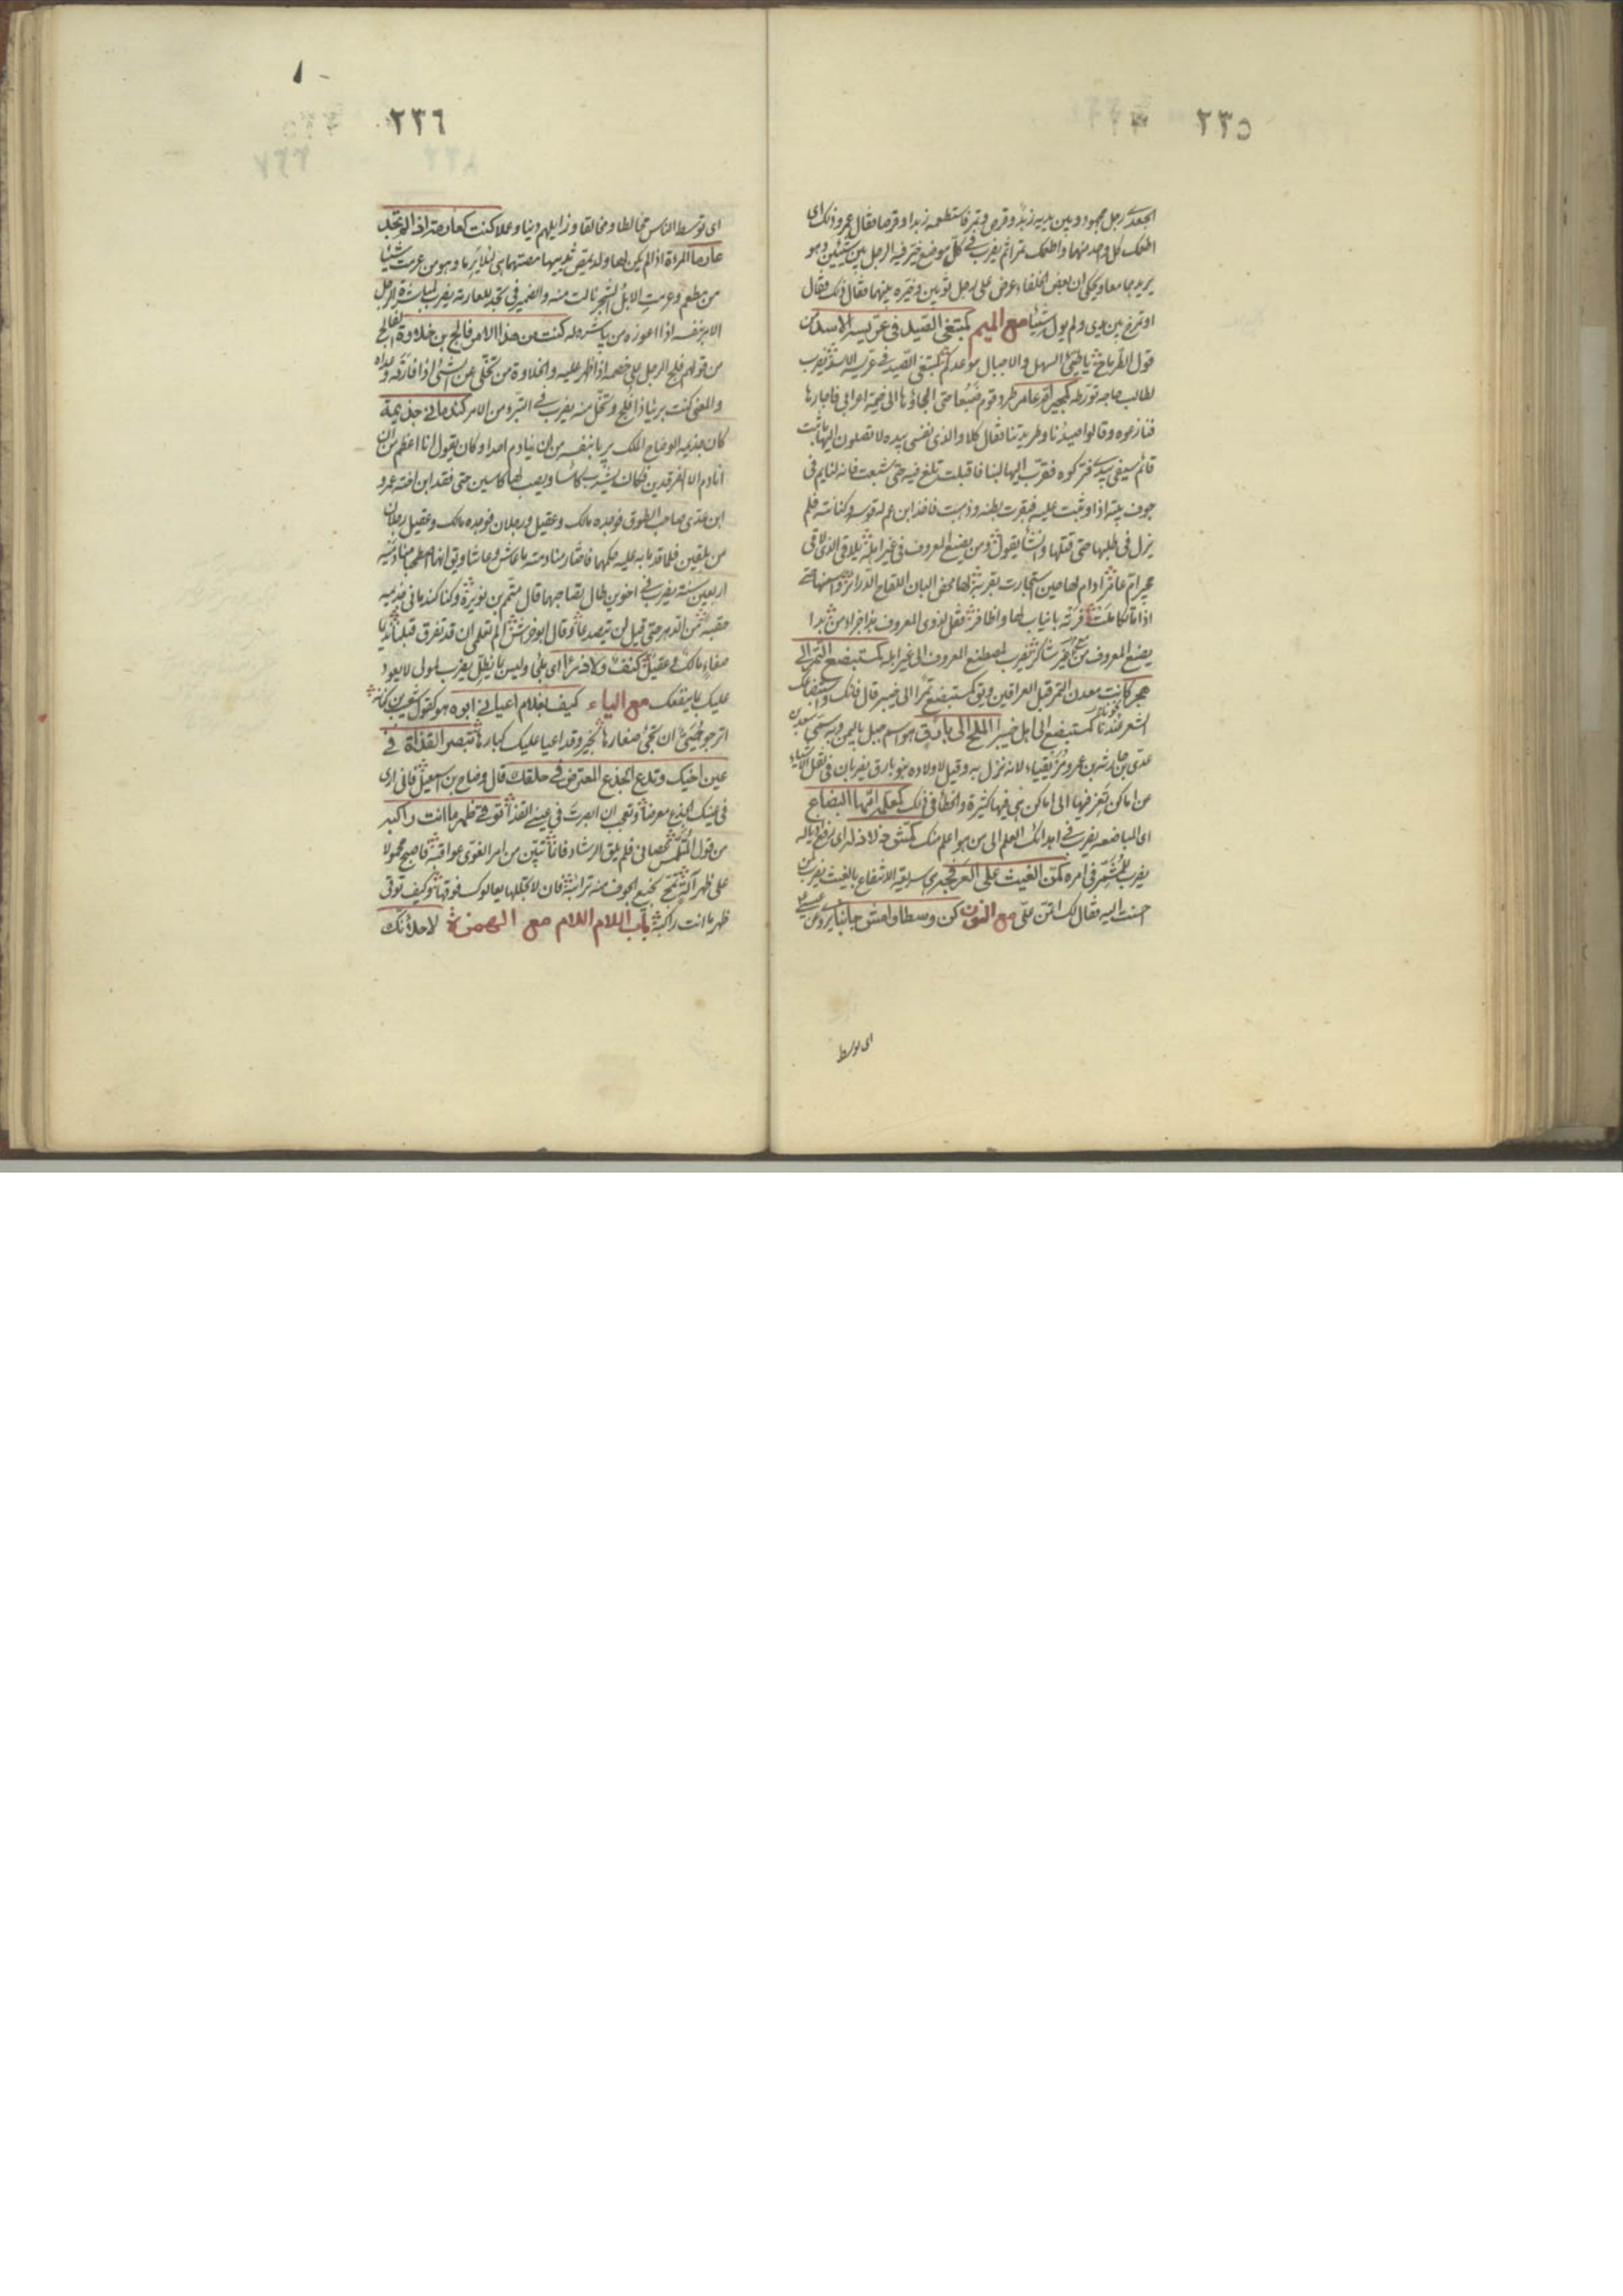 ٢٣٥
الجعدى رجل مجهود وبين يديه زبد وقرص وتمر فاستطعمه زبدا وقرصا فقال عمرو ذلك اى
اطعمك كل واحد منهما واطعمك تمرا ثم يضرب فى كل موضع خير فيه الرجل بين شيئين وهو
يريدهما معا ويحكى ان بعض الخلفاء عرض على رجل ثوبين وخيره بينهما فقال ذلك فقال
او تمزح بين يدى ولم يوله شيئا مع الميم كمبتغى الصيد فى عرّيسة الاسد من
قول الطرماح يا طيّئ السهل والاجبال موعدكم كمبتغى الصيد فى عرّيسة الاسد يضرب
لطالب حاجة تورطه كمجير ام عامر طرد قوم ضبعا حتى الجاؤها الى خيمة اعرابى فاجارها
فنازعوه وقالوا صيدنا وطريدتنا فقال كلا والذى نفسى بيده لا تصلون اليها ما ثبت
قائم سيفى بيدى فتركوه فقرب اليها لبنا فاقبلت تلغ فيه حتى شبعت فانه لنايم فى
جوف بيته اذا وثبت عليه فبقرت بطنه وذهبت فاخذ ابن عم له قوسه وكنانته فلم
يزل فى طلبها حتى قتلها وانشأ يقول ومن يصنع المعروف فى غير اهله يلاقى الذى لاقى
مجير ام عامر ادام لها حين استجارت بقربه لها محض البان اللقاح الدرائر واسمنها حتى
اذا ما تكاملت فرته بانياب لها واظافر فقل لذوى المعروف هذا جزاء من بدا
يصنع المعروف من غير شاكر يضرب لمصطنع المعروف الى غير اهله كمستبضع التمر الى
هجر كانت معدن التمر قبل العراقين ويق كمستبضع تمرا الى خيبر قال فانك واستبضاعك
الشعر نحونا كمستبضع الى اهل خيبرا الملح الى بارق هو اسم جبل باليمن وبه سمى سعد بن
عدى بن حارثة بن عمرو مزيقياء لانه نزل به وقيل لاولاده بنو بارق يضربان فى نقل الاشياء
عن اماكن تعز فيها الى اماكن هى فيها كثيرة والخطأ فى ذلك كمعلمة امها البضاع
اى المباضعة يضرب فى اهدائك العلم الى من هو اعلم منك كمش ذلاذله اى رفع اذياله
يضرب للمشمر فى امره كمن الغيث على العرفجة
حسنت اليه فقال لك اتمن على مع النون كن وسطا وامش جانبا
اى توسط
٢٣٦
اى توسط الناس مخالطا ومخالقا وزايلهم دينا وعملا كنت كعارمة اذا لم تجد
عارما المرأة اذا لم يكن لها ولد يمص ثدييها مصتهما هى وهو من عرمت شيئا
من مطعم وعرمت الابل الشجر نالت منه والضمير فى تجد للعارمة يضرب لمباشرة الرجل
الامر بنفسه اذا اعوزه من يباشره له كنت من هذا الامر فالج بن خلاوة الفالج
من قولهم فلج الرجل على خصمه اذا ظهر عليه والخلاوة من تخلى عن الشئ اذا فارقه وعداه
والمعنى كنت بريئا ذا فلج وتخل منه يضرب فى التبرؤ من الامر كندمانى جذيمة
كان جذيمة الوضاح الملك يربا بنفسه من ان ينادم احدا وكان يقول انا اعظم من ان
انادم الا الفرقدين فكان يشرب كأسا ويصب لهما كاسين حتى فقد ابن اخته عمرو
ابن عدى صاحب الطوق فوجده مالك وعقيل رجلان
من بلقين فلما قدما به عليه حكمهما فاختارا منادمته ما عاش وعاشا ويق انهما اصطحبا منادميه
اربعين سنة يضرب فى اخوين طال تصاحبهما قال متمم بن نويرة وكنا كندمانى جذيمة
حقبة من الدهر حتى قيل لن يتصدعا وقال ابو خراش الم تعلمى ان قد تفرق قبلنا نديما
صفاء مالك وعقيل كنف ولا ذرا اى ملجئ وليس بمظل يضرب لمولى لا يعود
عليك بما ينفعك مع الياء كيف بغلام اعيانى ابوه هو كقول شعيب بن كنانة
اترجو يحيى ان تجئ صغارها بخير وقد اعيا عليك كبارها تبصر القذاة فى
عين اخيك وتدع الجذع المعترض فى حلقك قال وضاح بن اسمعيل فانى ارى
فى عينك الجذع معرضا وتعجب ان ابصرت فى عينى القذا توقى ظهر ما انت راكبه
من قول المتلمس عصانى فلم يلق الرشاد فانما تبين من امر الغوى عواقبه فاصبح محمولا
على ظهر آلة تمج نجيع الجوف منه ترائبه فان لا تجللها يعالوك فوقها وكيف توقى
ظهر ما انت راكبه باب اللام اللام مع الهمزة لاحلأنك